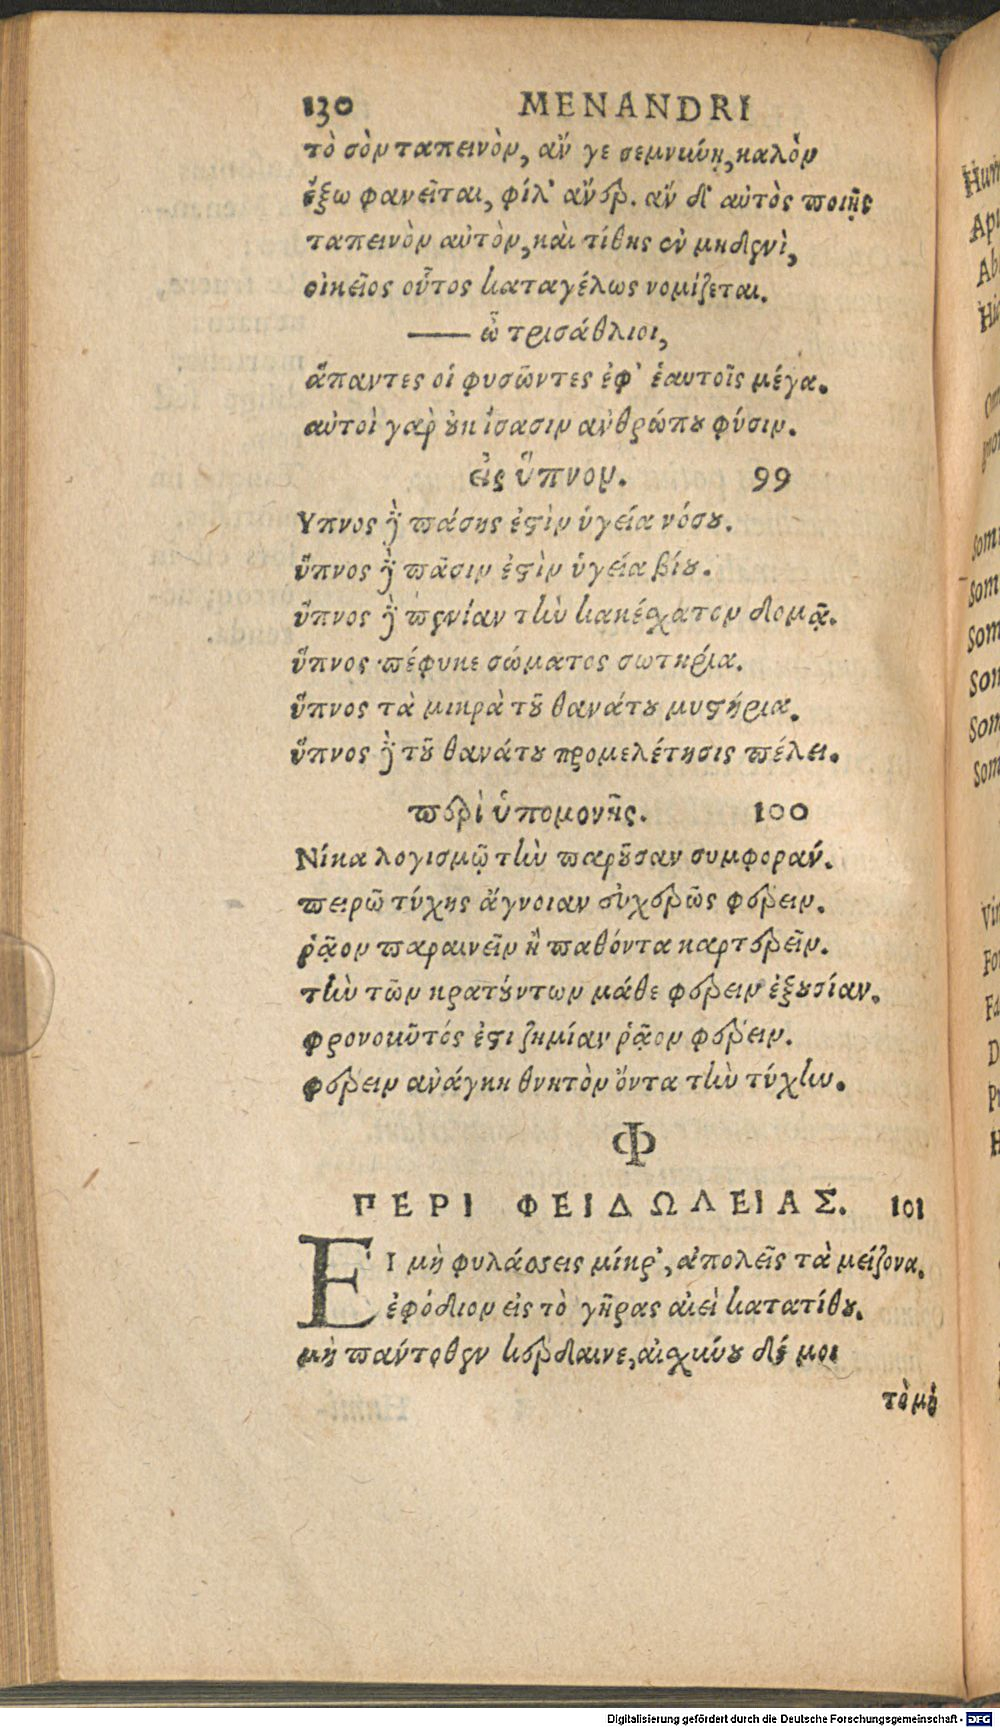 130 MENANDRI
τὸ σὸν ταπεινὸν, ἄν γε σεμνύνῃ, καλὸν
ἔξω φανεῖται, φίλ' ἄνερ. ἂν δ' αὐτὸς ποιῇς
ταπεινὸν αὐτὸν, καὶ τίθης ἐν μηδενὶ,
οἰκεῖος οὗτος καταγέλως νομίζεται.
—— ὦ τρισάθλιοι,
ἅπαντες οἱ φυσῶντες ἐφ' ἑαυτοῖς μέγα.
αὐτοὶ γὰρ ουκ ἴσασιν ἀνθρώπου φύσιν.
εἰς ὕπνον. 99
Υπνος δὲ πάσης ἐστὶν ὑγεία νόσου.
ὕπνος δὲ πᾶσιν ἐστὶν ὑγεία βίου.
ὕπνος δὲ πενίαν τὴν κακέσχατον δαμᾷ.
ὕπνος πέφυκε σώματος σωτηρία.
ὕπνος τὰ μικρὰ τοῦ θανάτου μυστήρια.
ὕπνος δὲ τοῦ θανάτου προμελέτησις πέλει.
περὶ ὑπομονῆς. 100
Νίκα λογισμῷ τὴν παροῦσαν συμφοράν.
πειρῶ τύχης ἄγνοιαν εὐχερῶς φέρειν.
ῥᾷον παραινεῖν ἢ παθόντα καρτερεῖν.
τὴν τῶν κρατούντων μάθε φέρειν ἐξουσίαν.
φρονοῦντός ἐστι ζημίαν ῥᾷον φέρειν.
φέρειν ἀνάγκη θνητὸν ὄντα τὴν τύχην.
Φ
ΠΕΡΙ ΦΕΙΔΩΛΕΙΑΣ. 101
ΕΙ μὴ φυλάσσεις μίκρ', ἀπολεῖς τὰ μείζονα.
ἐφόδιον εἰς τὸ γῆρας αἰεὶ κατατίθου.
μὴ πάντοθεν κέρδαινε, αἰσχύνου δέ μοι
τὸ μὴ
Digitalisierung gefördert durch die Deutsche Forschungsgemeinschaft - DFG